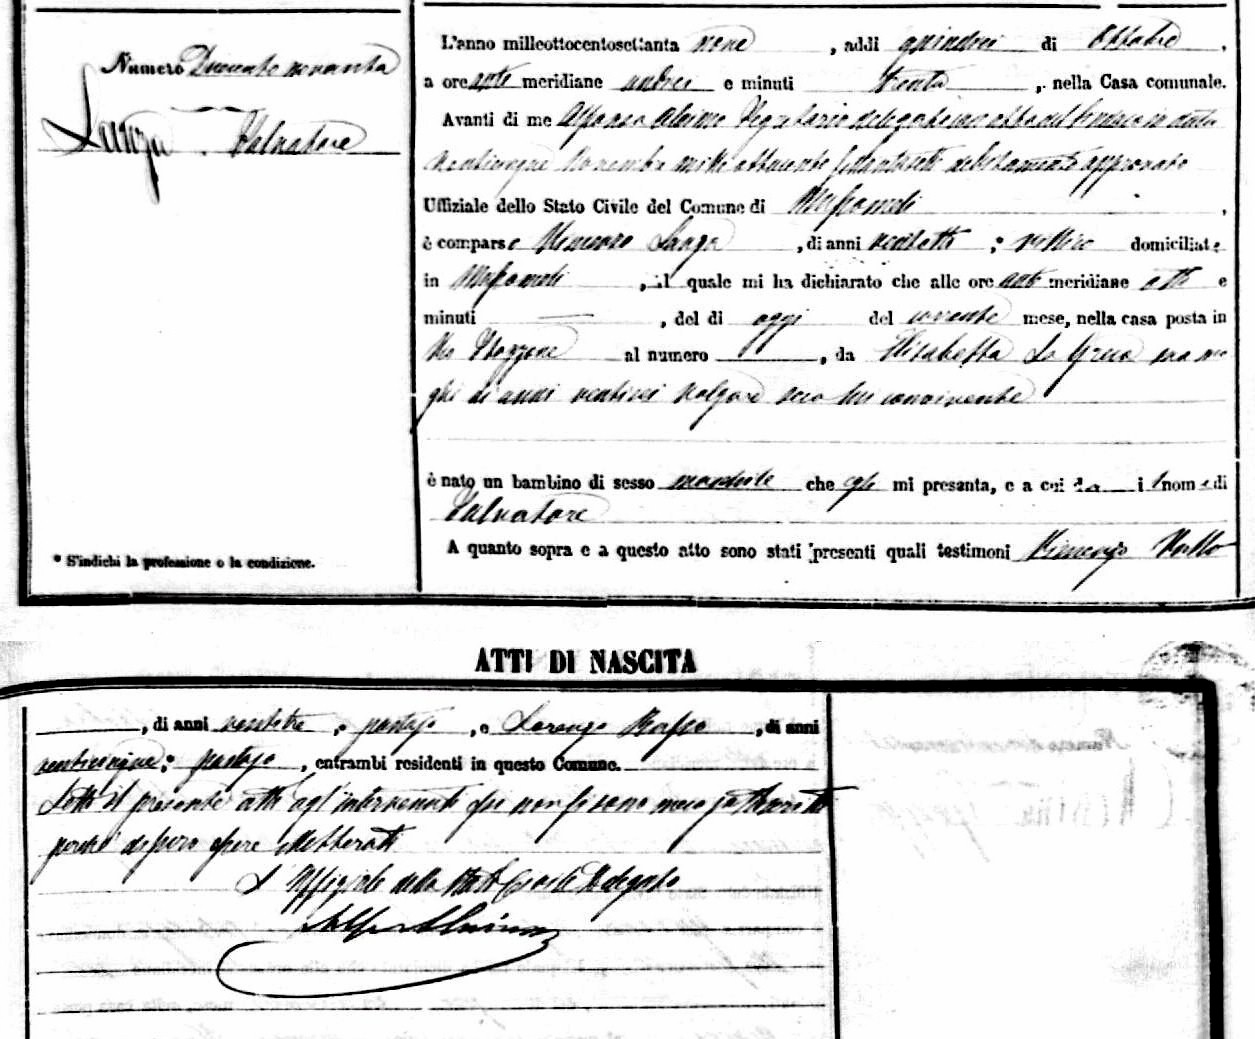 Numero Duecento novanta
Lanza Salvatore
* S'indichi la professione o la condizione.
L'anno milleottocentosettanta nove, addi quindici di Ottobre,
a ore ante meridiane undici e minuti trenta, nella Casa comunale.
Avanti di me Alfonso Alaimo Segretario delegato con atto del Sindaco in data
ventinove Novembre mille ottocento settantasette debitamente approvato
Uffiziale dello Stato Civile del Comune di Mussomeli,
è comparso Vincenzo Lanza, di anni ventotto; domiciliato
in Mussomeli, il quale mi ha dichiarato che alle ore ante meridiane otto e
minuti —, del dì oggi del corrente mese, nella casa posta in
Via al numero —, da Elisabetta La Greca sua mo
glie di anni ventisei seco lui convivente
è nato un bambino di sesso maschile che egli mi presenta, e a cui da i l nome di
Salvatore
A quanto sopra e a questo atto sono stati presenti quali testimoni Vincenzo
ATTI DI NASCITA
, di anni ventitre, pastajo, e Lorenzo, di anni
venticinque, pastajo, entrambi residenti in questo Comune.
Letto il presente atto agl'intervenuti non si sono meco sottoscritti
perché dissero essere illetterati
L'Uffiziale dello Stato Civile Delegato
Alfo Alaimo